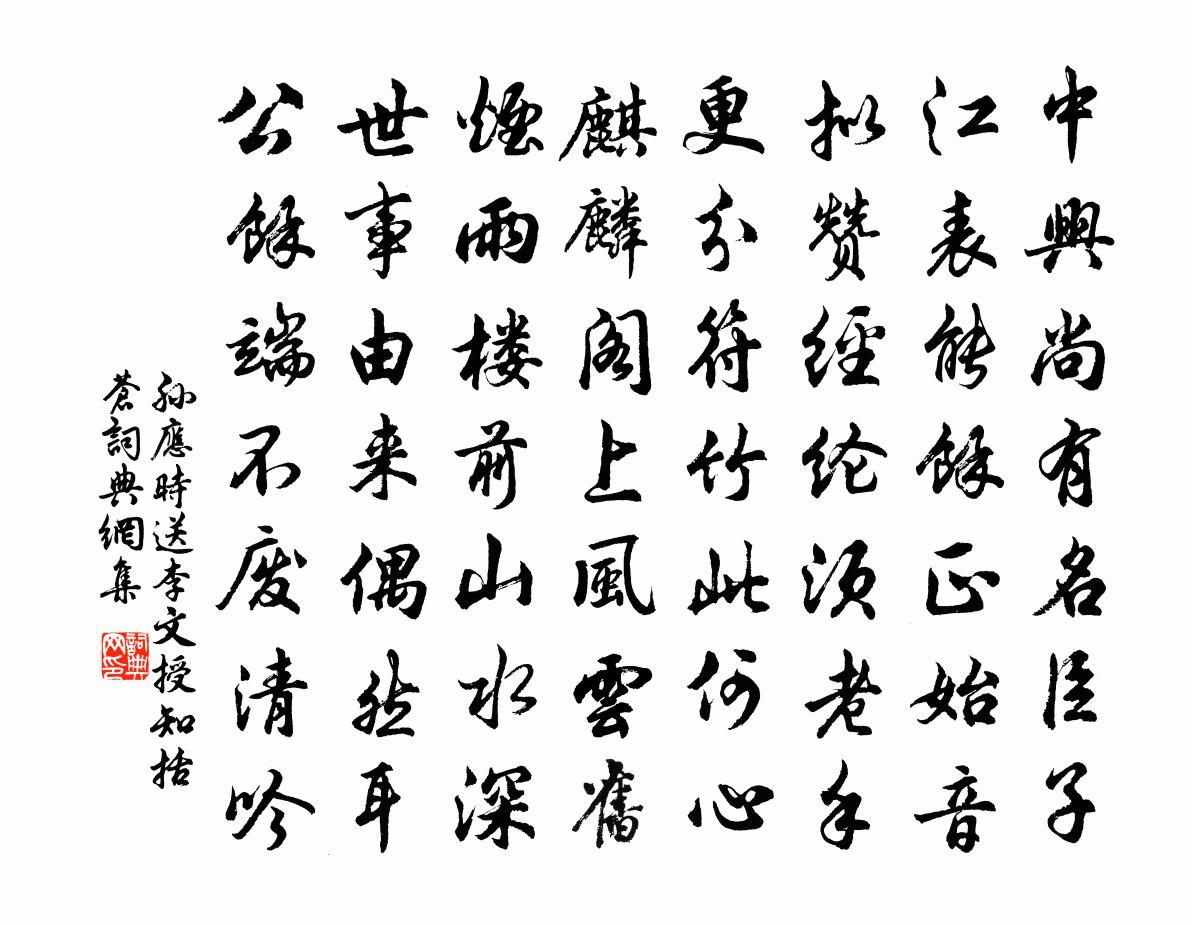 中興尚有名臣子
江表能餘正始音
拟赞經纶須老手
更分符竹此何心
麒麟阁上風雲舊
煙雨楼前山水深
世事由来偶然耳
公餘端不废清吟
孙應時送李文授知括
蒼詞典網集
詞典网印